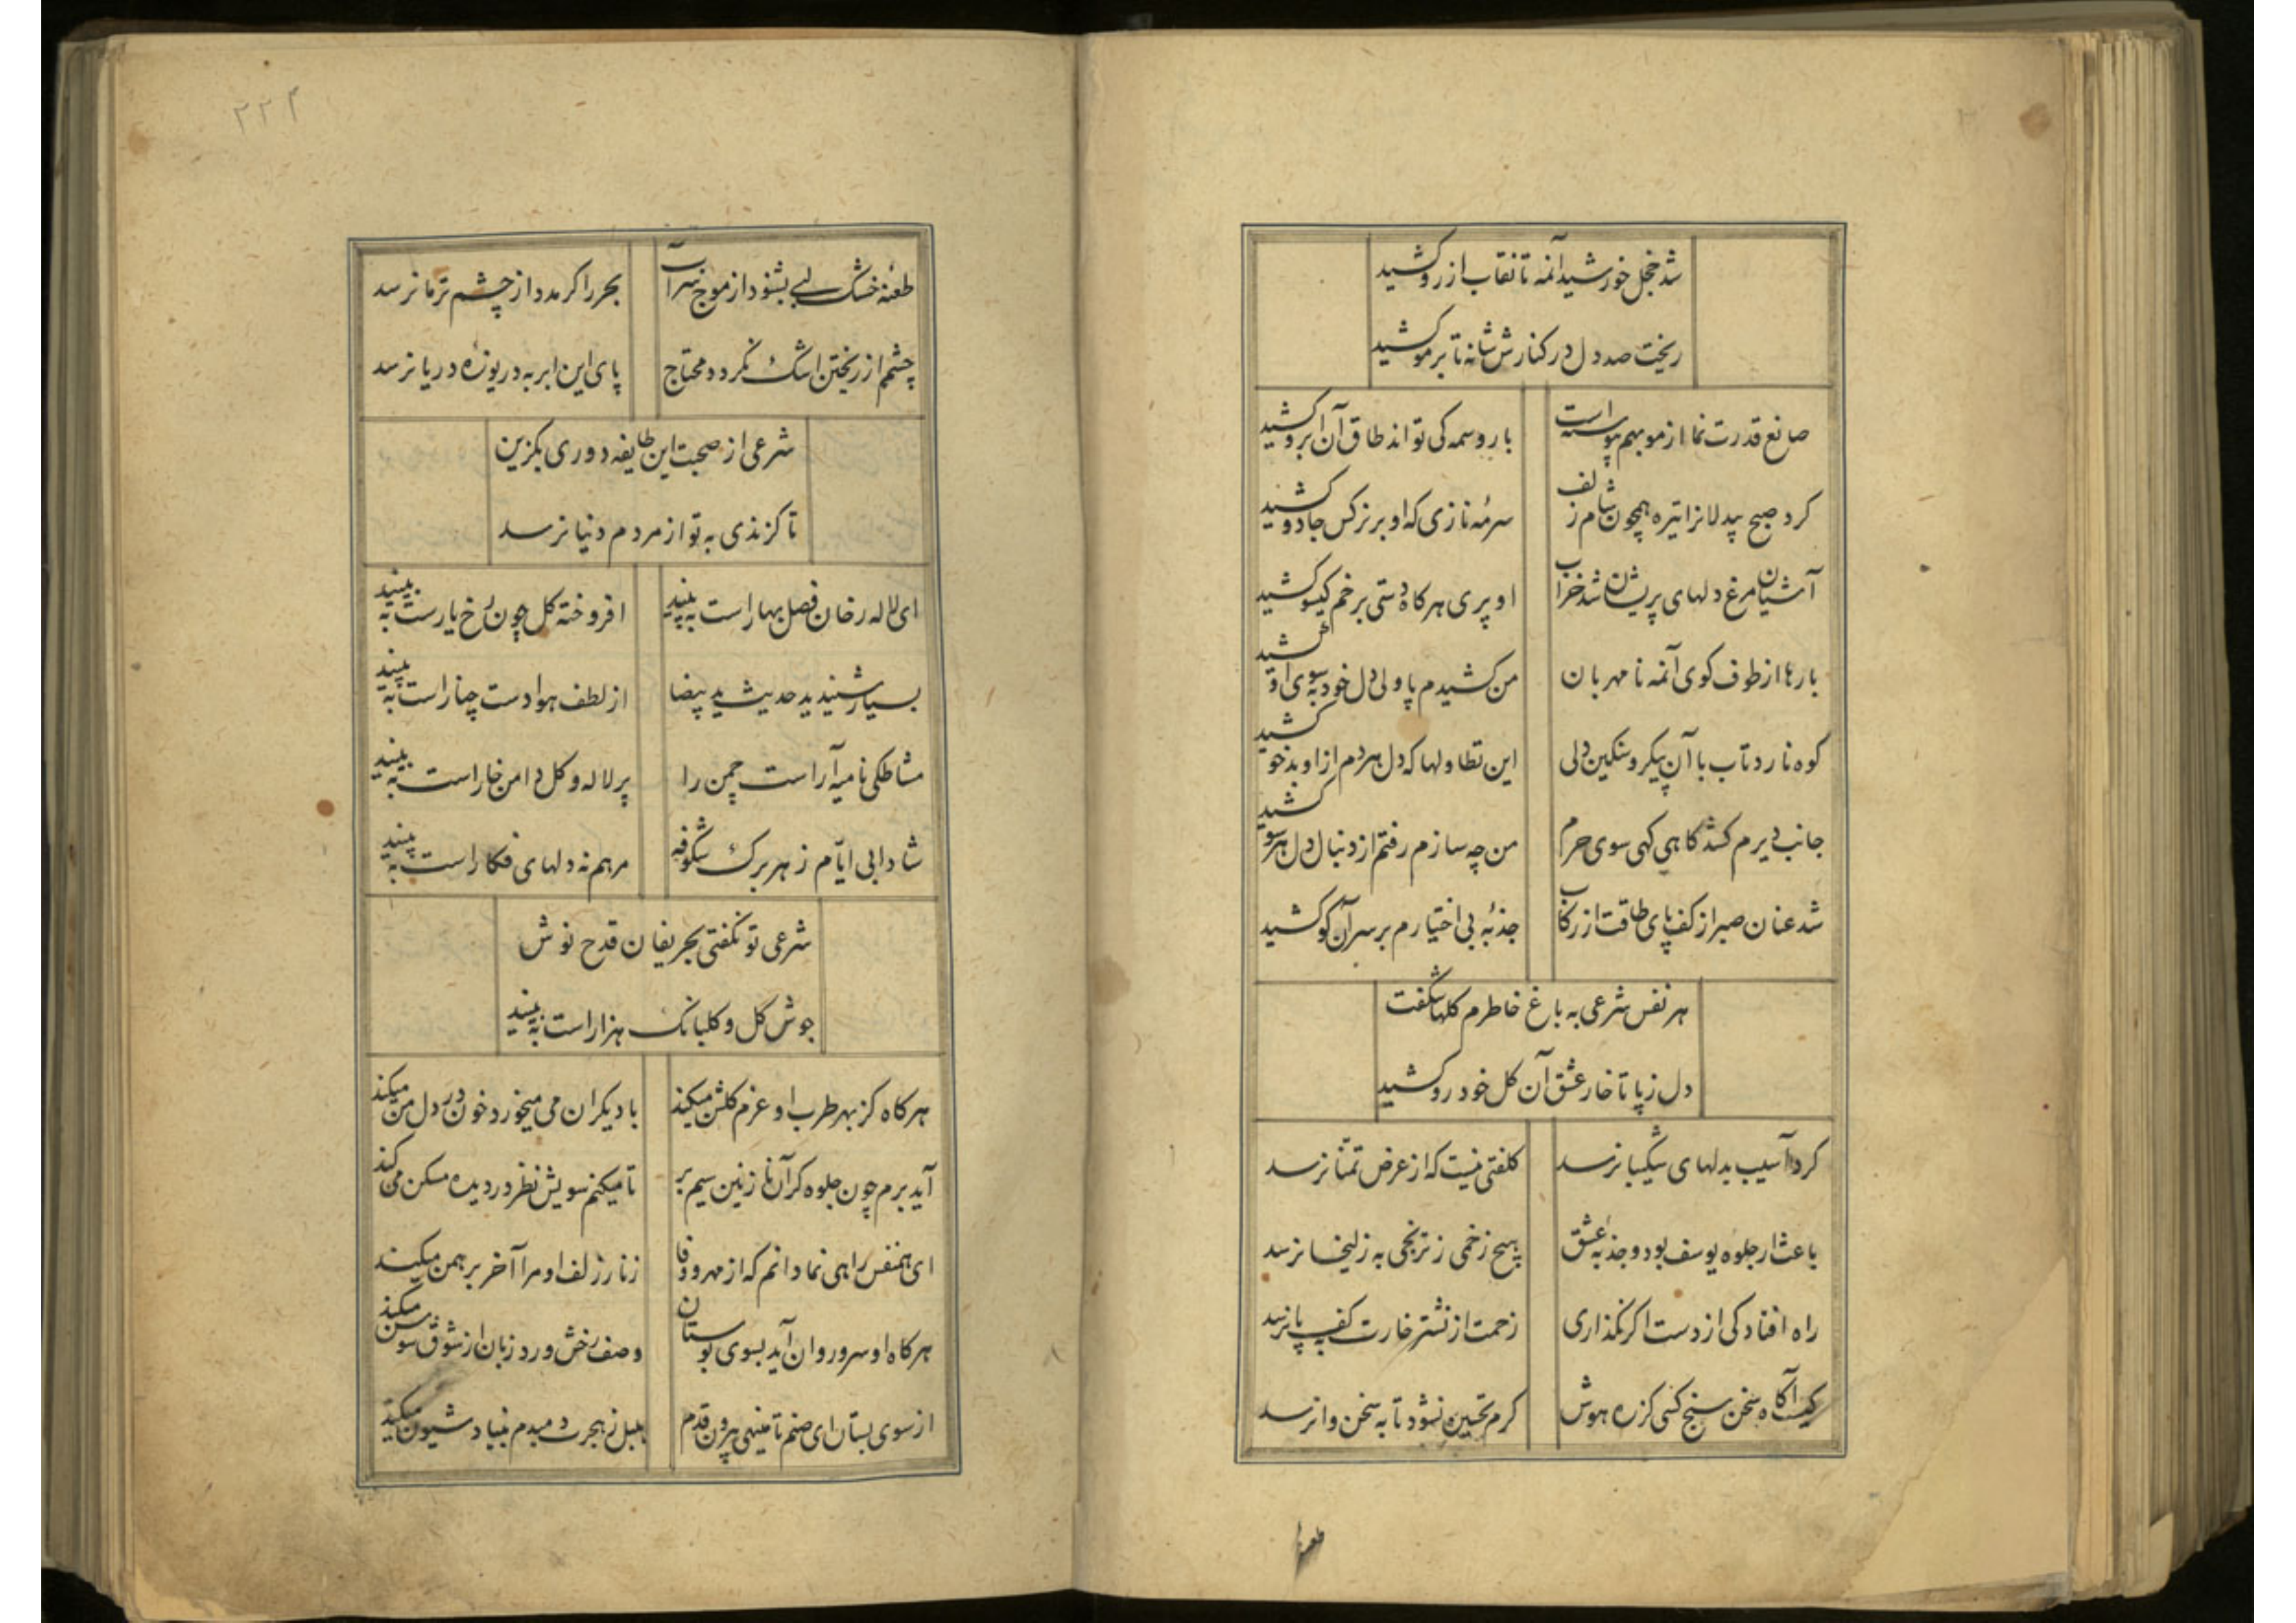 شد خجل خورشید آنمه تا نقاب از رو کشید
ریخت صد دل در کنارش شانه تا بر مو کشید
صانع قدرت نما از مو بهم پیوسته است
بار وسمه کی تواند طاق آن ابرو کشید
کرد صبح بیدلانرا تیره همچون شام زلف
سرمهٔ نازی که او بر نرکس جادو کشید
آشیان مرغ دلهای پریشان شد خراب
او پری هر کاه دستی بر خم کیسو کشید
بارها از طوف کوی آنمه نا مهربان
من کشیدم پا ولی دل خود بسوی او کشید
کوه نارد تاب با آن پیکر و سنکین دلی
این تطاولها که دل هر دم از او بدخو کشید
جانب دیرم کشد کاهی کهی سوی حرم
من چه سازم رفتم از دنبال دل هر سو کشید
شد عنان صبر از کف پای طاقت از رکاب
جذبهٔ بی اختیارم بر سر آن کو کشید
هر نفس شرعی به باغ خاطرم کلها شکفت
دل ز پا تا خار عشق آن کل خود رو کشید
کرد آسیب بدلهای شکیبا نرسد
کلفتی نیست که از عرض تمنا نرسد
باعث ار جلوه یوسف بود و جذبه عشق
هیچ زخمی ز ترنجی به زلیخا نرسد
راه افتادکی از دست اکر نکذاری
زحمت از نشتر خارت بکف پا نرسد
کیست آکاه سخن سنج کسی کز ره هوش
کرم تحسین نشود تا به سخن وا نرسد
طعنهٔ
۲۲۲
طعنه خشک لبی بشنود از موج سراب
بحر را کر مدد از چشم تر ما نرسد
چشمم از ریختن اشک نکردد محتاج
پای این ابر به دریوزهٔ دریا نرسد
شرعی از صحبت این طایفه دوری بکزین
تا کزندی به تو از مردم دنیا نرسد
ای لاله رخان فصل بهار است به بینید
افروخته کل چون رخ یار است به بینید
بسیار شنیدید حدیث ید بیضا
از لطف هوا دست چنار است به بینید
مشاطکی نامیه آراست چمن را
پر لاله و کل دامن خار است به بینید
شادابی ایّام ز هر برک شکوفه
مرهم نه دلهای فکار است به بینید
شرعی تو نکفتی بحریفان قدح نوش
جوش کل و کلبانک هزار است به بینید
هر کاه کز بهر طرب او عزم کلشن میکند
با دیکران می میخورد خون در دل من میکند
آید برم چون جلوه کر آن نازنین سیم بر
تا میکنم سویش نظر در دیده مسکن می کند
ای همنفس راهی نما دانم که از مهر و وفا
زنار زلف او مرا آخر برهمن میکند
هر کاه او سرو روان آید بسوی بوستان
وصف رخش ورد زبان از شوق سوسن میکند
از سوی بستان ای صنم تا مینهی بیرون قدم
بلبل ز هجرت دمبدم بنیاد شیون میکند